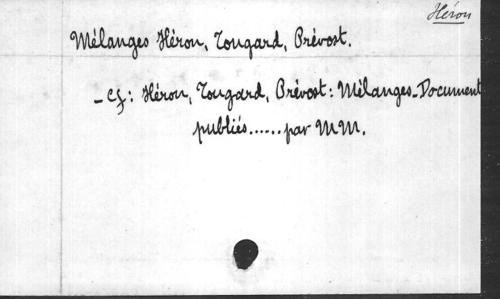 Héron
Mélanges Héron, Tougard, Prévost.
- Cf: Héron, Tougard, Prévost: Mélanges_Document
publiés......par MM.